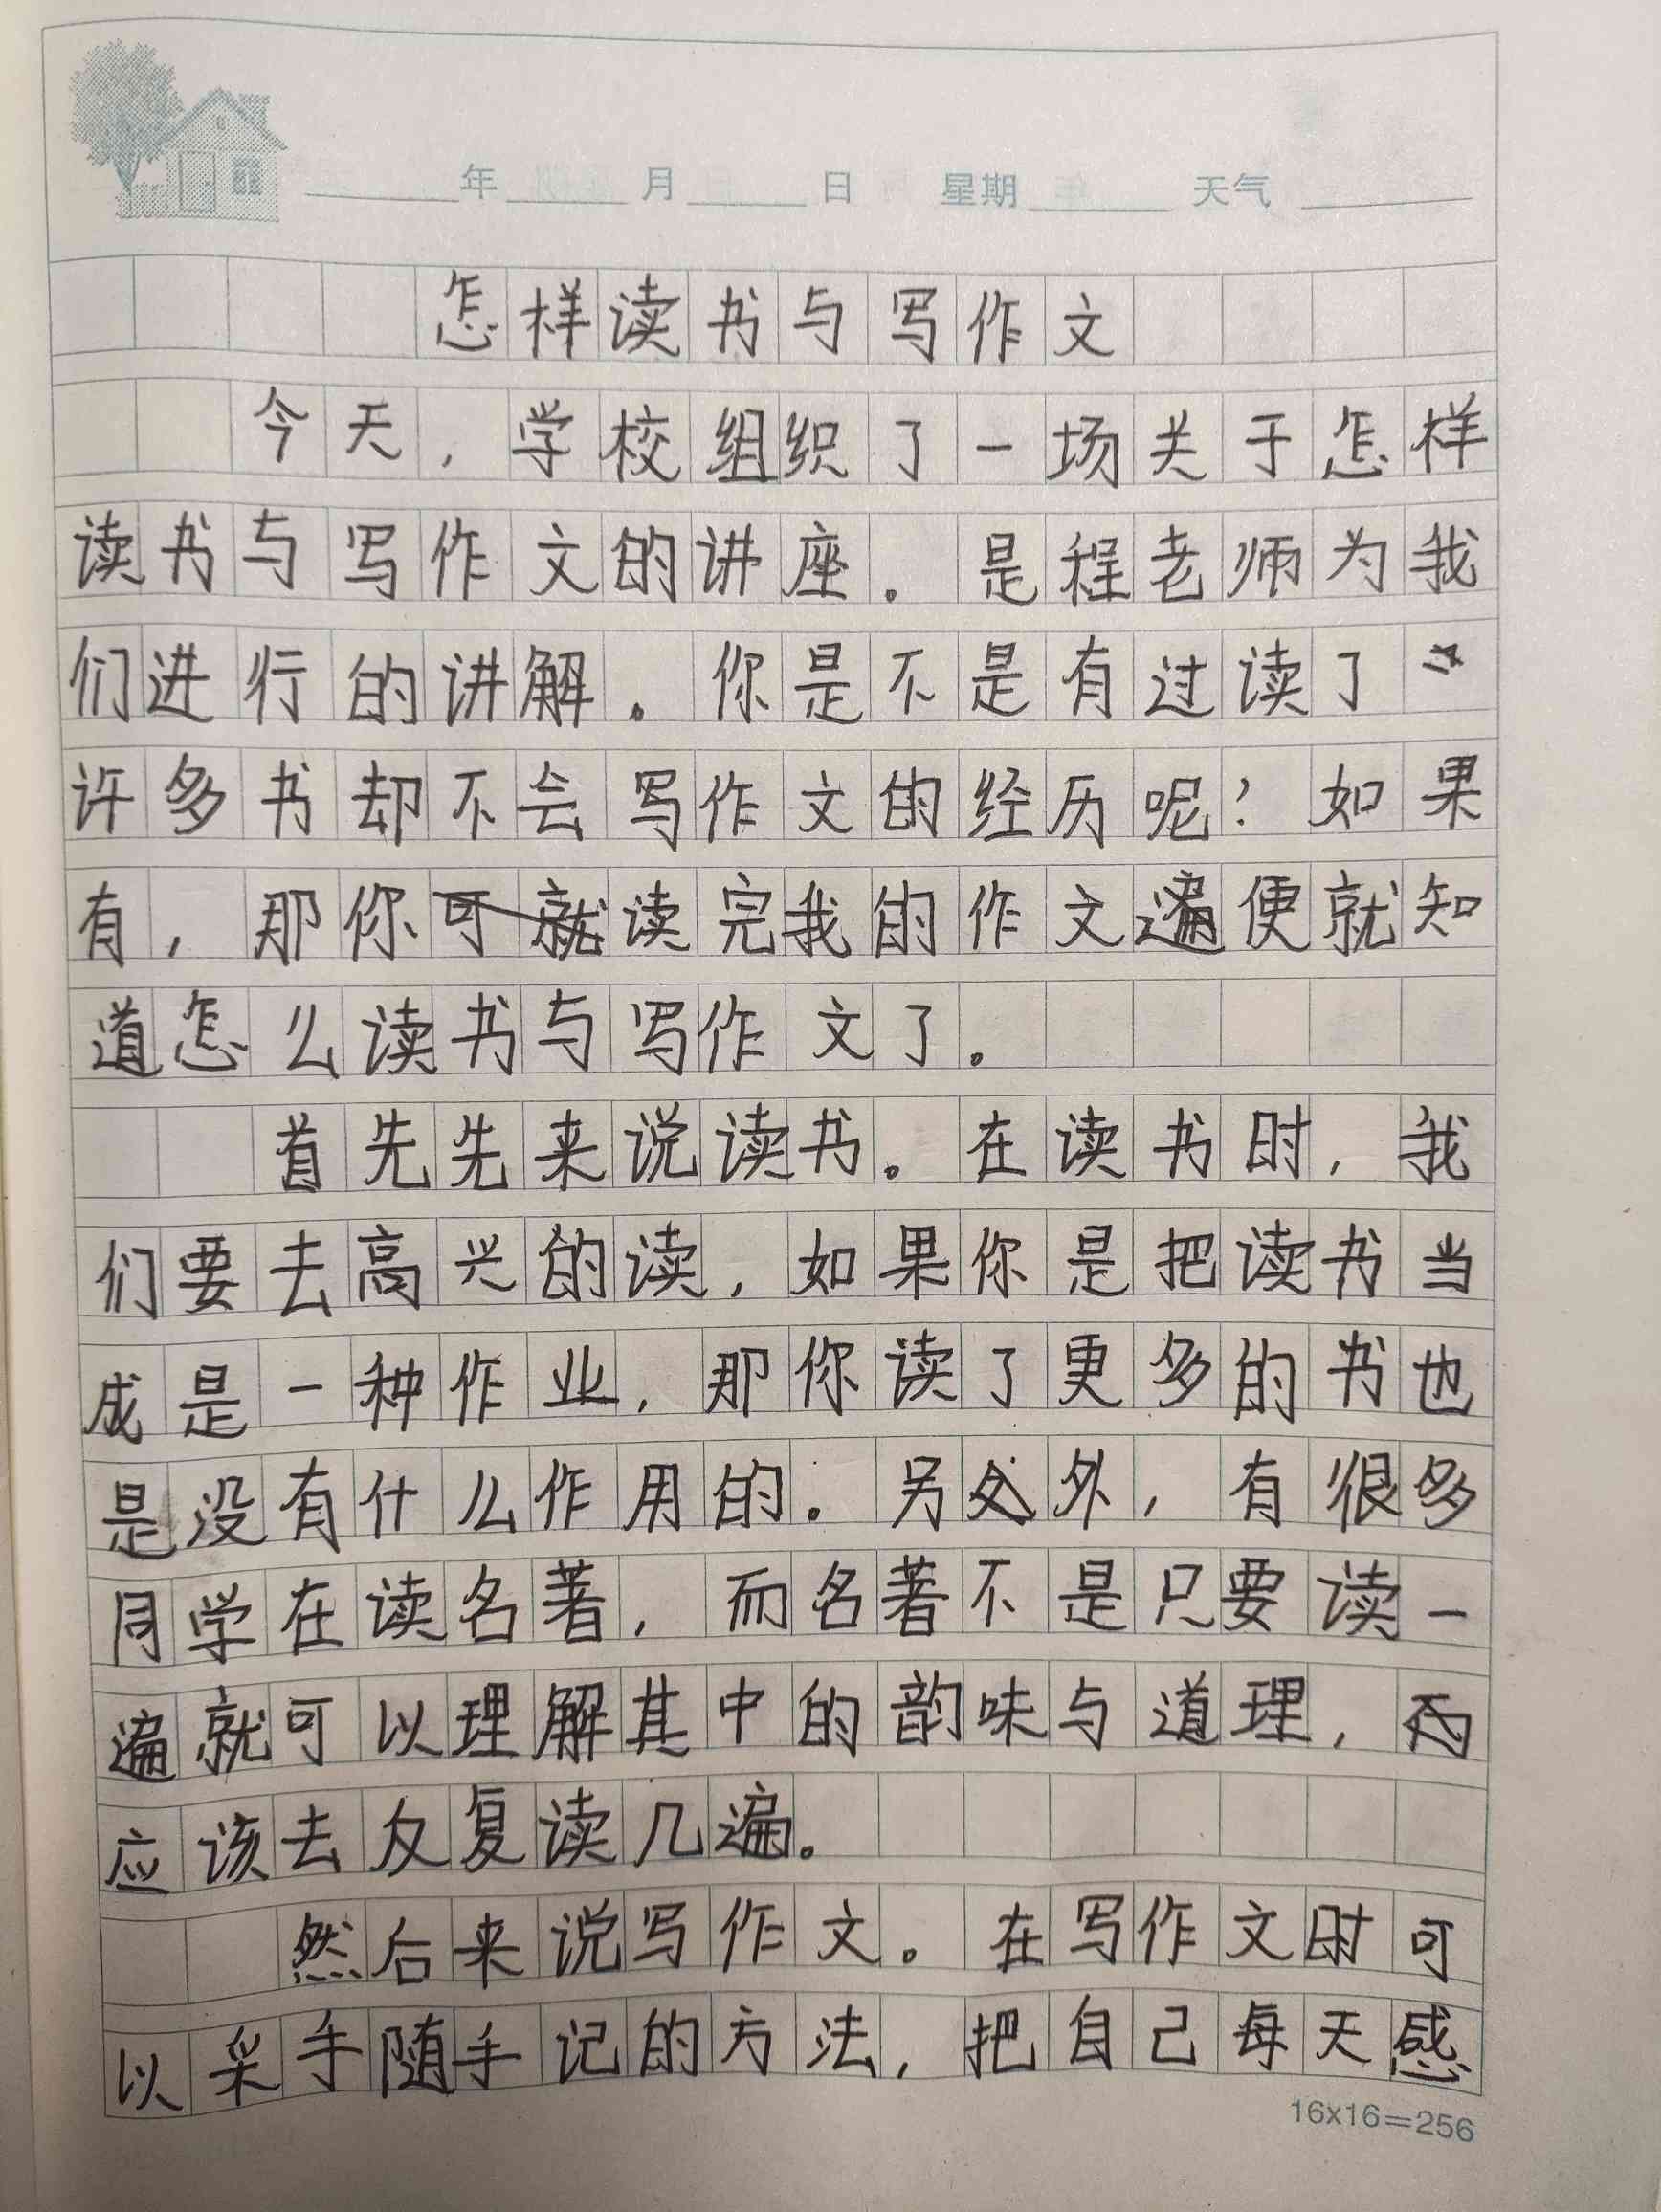 年 月 日 星期 天气
怎样读书与写作文
今天,学校组织了一场关于怎样
读书与写作文的讲座。是程老师为我
们进行的讲解。你是不是有过读了
许多书却不会写作文的经历呢?如果
有,那你读完我的作文遍便就知
道怎么读书与写作文了。
首先先来说读书。在读书时,我
们要去高兴的读,如果你是把读书当
成是一种作业,那你读了更多的书也
是没有什么作用的。另外,有很多
同学在读名著,而名著不是只要读一
遍就可以理解其中的韵味与道理,
应该去反复读几遍。
然后来说写作文。在写作文时可
以采手随手记的方法,把自己每天感
16x16=256